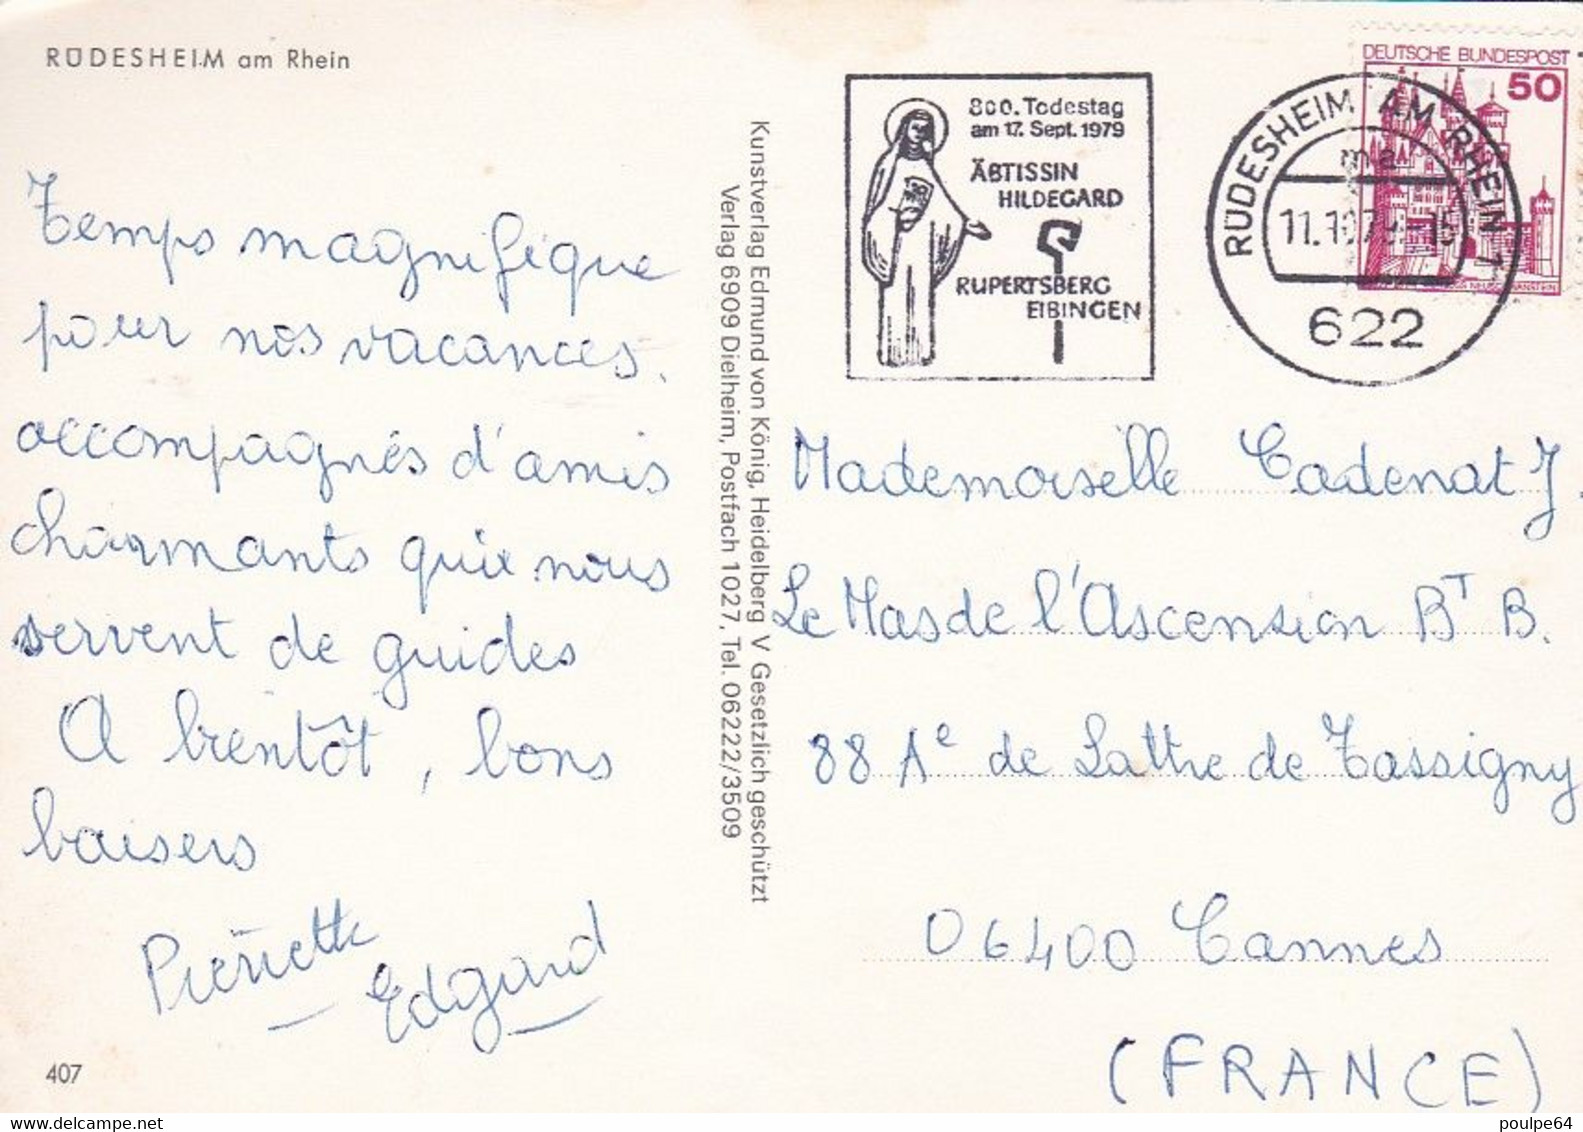 RÜDESHEIM am Rhein
Temps magnifique
pour nos vacances.
accompagnés d'amis
charmants qui nous
servent de guides
A bientôt, bons
baisers
Pierrette
Edgard
407
Kunstverlag Edmund von König, Heidelberg V Gesetzlich geschützt
Verlag 6909 Dielheim, Postfach 1027, Tel. 06222/3509
800. Todestag
am 17. Sept. 1979
ÄBTISSIN
HILDEGARD
RUPERTSBERG
EIBINGEN
RÜDESHEIM AM RHEIN 1
ma
11.10.79-15
622
DEUTSCHE BUNDESPOST
50
Mademoiselle Cadenat J.
Le Mas de l'Ascension Bᵀ B.
88 Aᵉ de Lattre de Tassigny
06400 Cannes
(FRANCE)
poulpe64